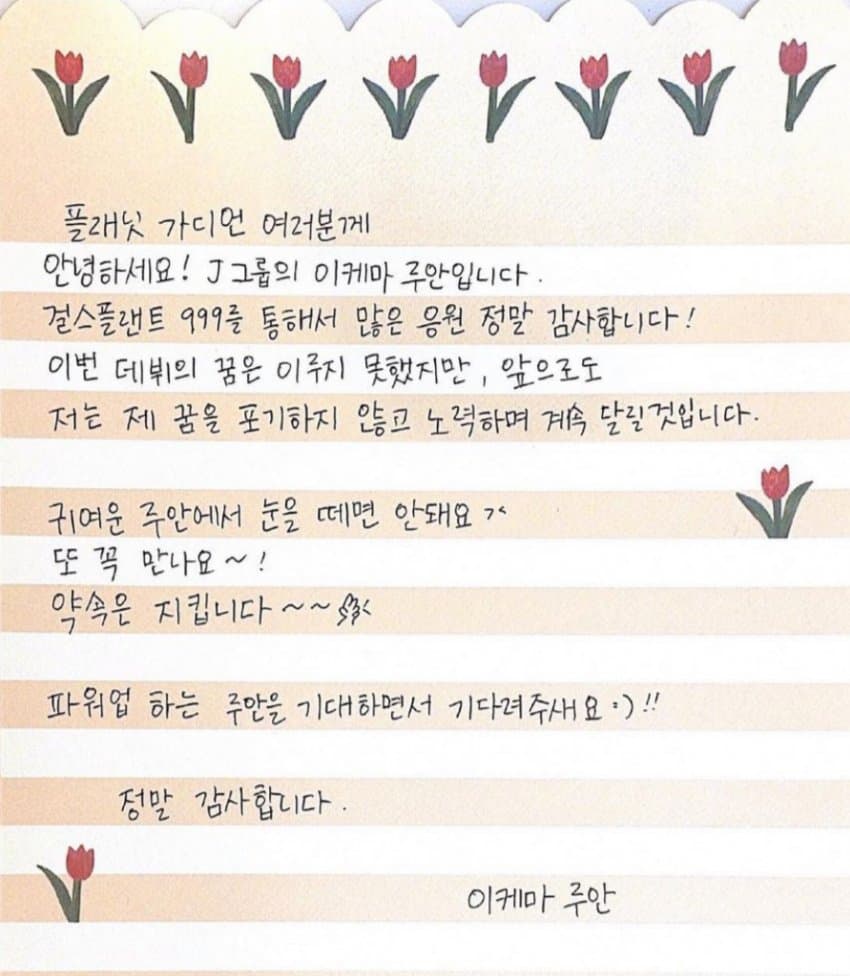 플래닛 가디언 여러분께
안녕하세요! J그룹의 이케마 루안입니다.
걸스플랜트 999를 통해서 많은 응원 정말 감사합니다!
이번 데뷔의 꿈은 이루지 못했지만, 앞으로도
저는 제 꿈을 포기하지 않고 노력하며 계속 달릴것입니다.
귀여운 루안에서 눈을 떼면 안돼요 ><
또 꼭 만나요~!
약속은 지킵니다~~
파워업 하는 루안을 기대하면서 기다려주새요 :) !!
정말 감사합니다.
이케마 루안